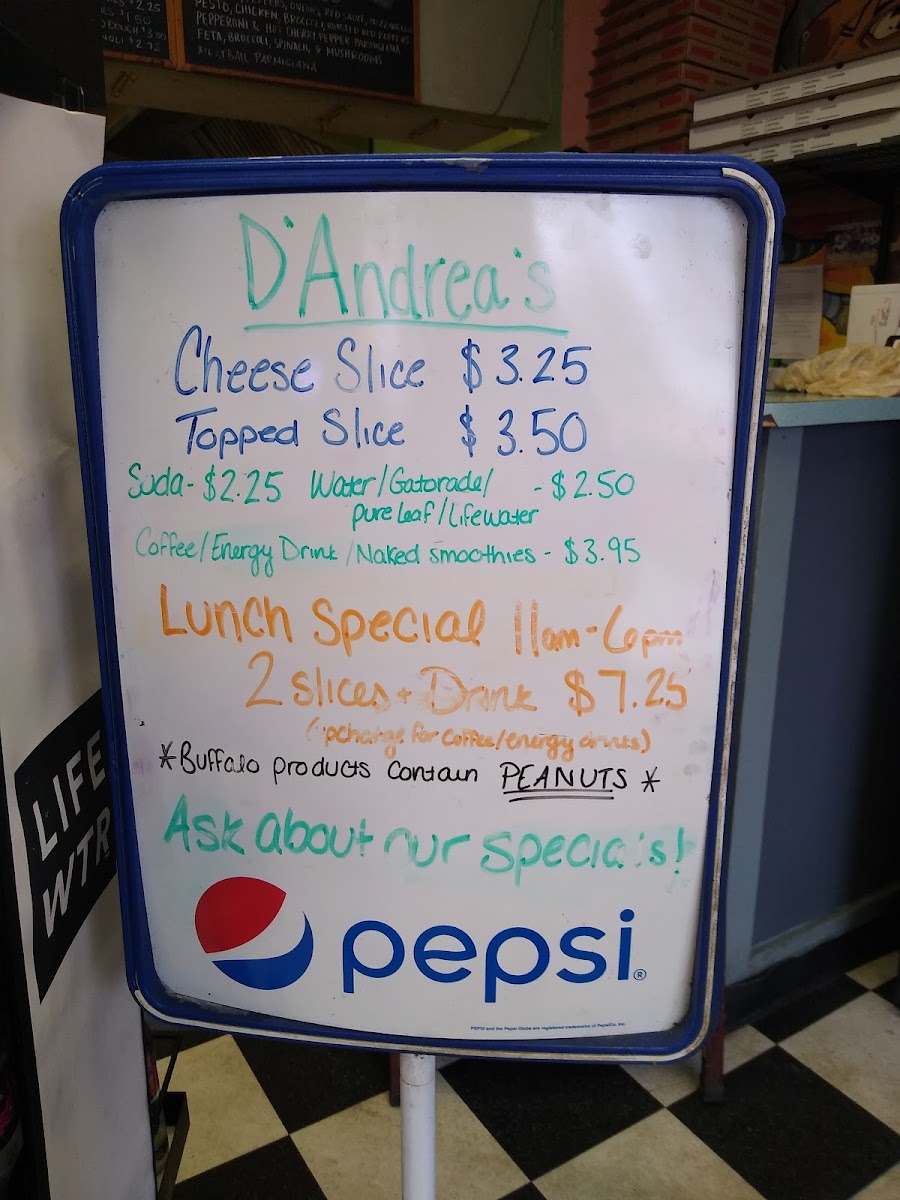 $2.25
$1.50
$3.50
$2.75
PESTO, CHICKEN, BROCCOLI, ROASTED RED PEPPERS
PEPPERONI & HOT CHERRY PEPPER PARMIGIANA
FETA, BROCCOLI, SPINACH, & MUSHROOMS
PARMIGIANA
D'Andrea's
Cheese Slice $3.25
Topped Slice $3.50
Soda - $2.25 Water/Gatorade/ - $2.50
pure leaf/Lifewater
Coffee/Energy Drink/Naked smoothies - $3.95
Lunch Special 11am-6pm
2 slices + Drink $7.25
(upcharge for coffee/energy drinks)
*Buffalo products contain PEANUTS*
Ask about our specials!
pepsi®
PEPSI and the Pepsi Globe are registered trademarks of PepsiCo, Inc.
LIFE
WTR